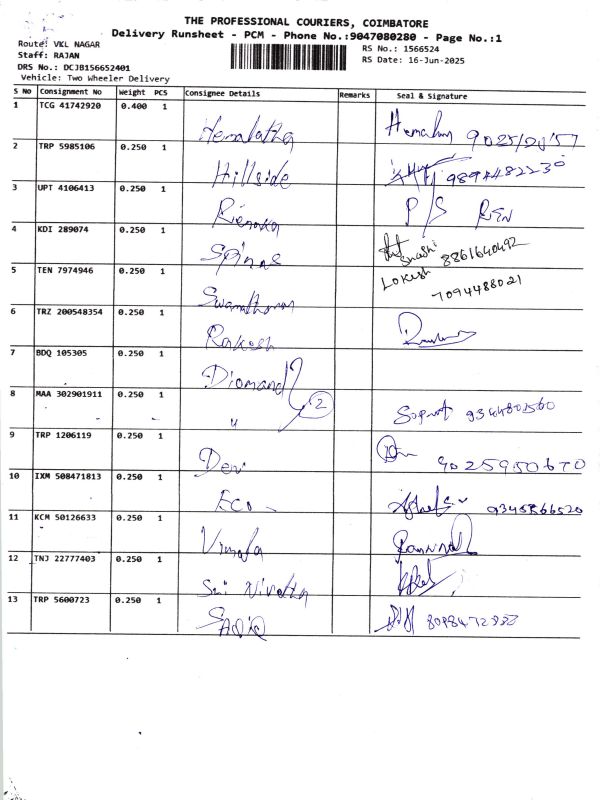 THE PROFESSIONAL COURIERS, COIMBATORE
Delivery Runsheet - PCM - Phone No.:9047080280 - Page No.:1
Route: VKL NAGAR
RS No.: 1566524
Staff: RAJAN
RS Date: 16-Jun-2025
DRS No.: DCJB156652401
Vehicle: Two Wheeler Delivery
S No Consignment No Weight PCS Consignee Details Remarks Seal & Signature
1 TCG 41742920 0.400 1 Hemalatha
2 TRP 5985106 0.250 1 Hillside 9894482230
3 UPT 4106413 0.250 1 P/S
4 KDI 289074 0.250 1 Spinas Shashi 8861640492
5 TEN 7974946 0.250 1 Lokesh 7094488021
6 TRZ 200548354 0.250 1 Rakesh
7 BDQ 105305 0.250 1 Diomand
8 MAA 302901911 0.250 1 " 2 9344801560
9 TRP 1206119 0.250 1 Devi 9025950670
10 IXM 508471813 0.250 1 Eco 9345866520
11 KCM 50126633 0.250 1
12 TNJ 22777403 0.250 1 Sri
13 TRP 5600723 0.250 1 SADIQ